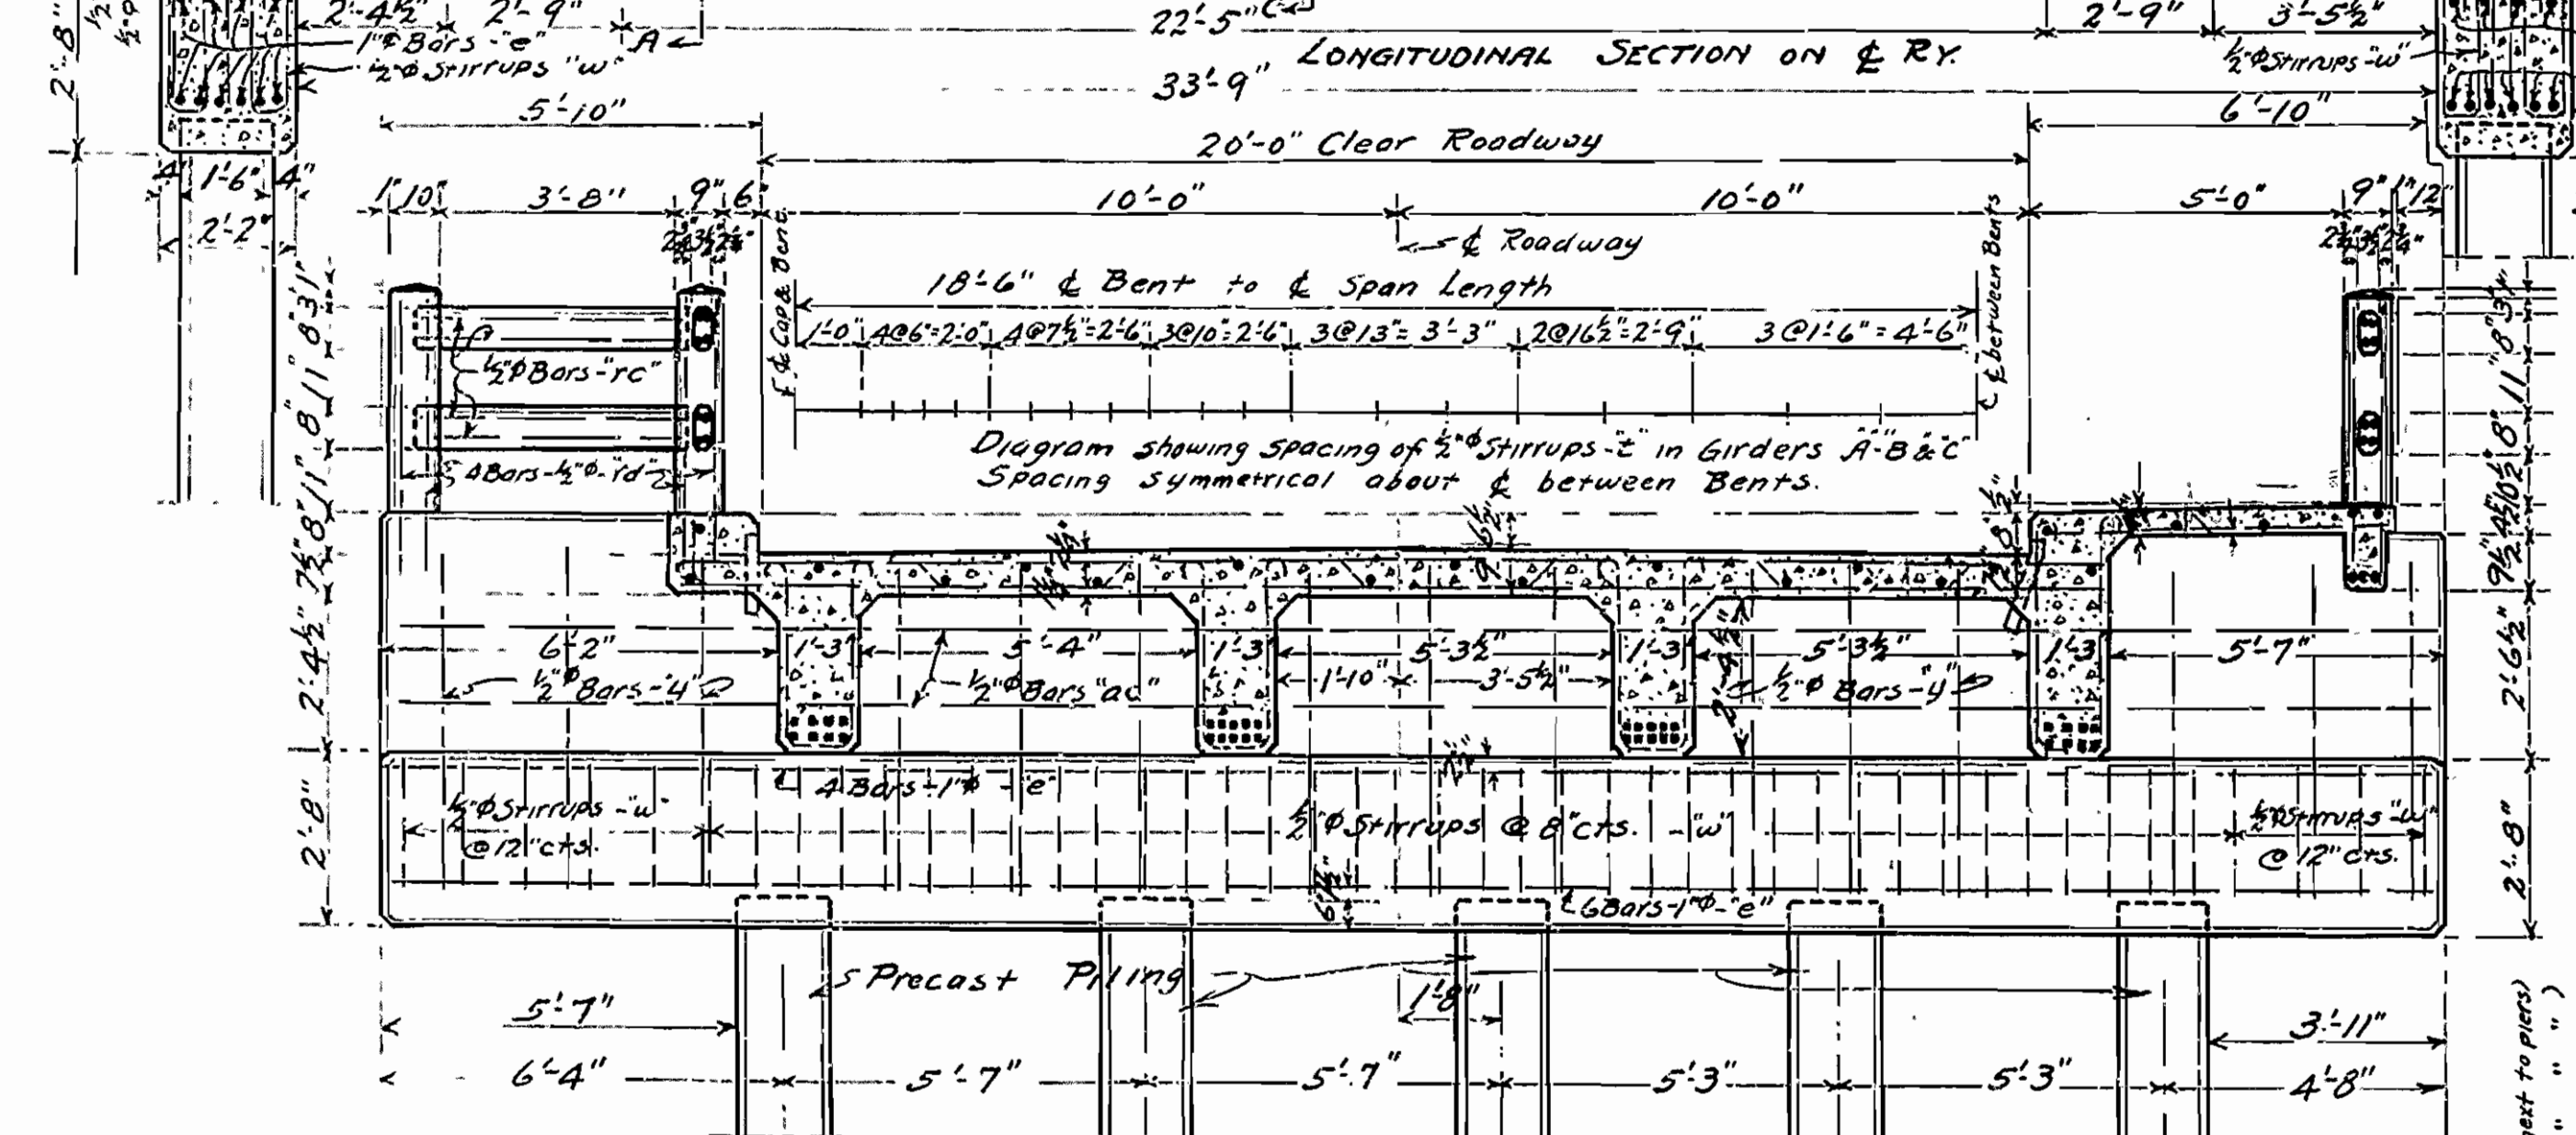 2'-4½" 2'-9" 22'-5" 2'-9" 3'-5½"
2'-8"
1"ϕ Bars-"e" A
½"ϕ Stirrups "w"
LONGITUDINAL SECTION ON ℄ RY.
½"ϕ Stirrups-"w"
33'-9"
5'-10" 6'-10"
20'-0" Clear Roadway
4" 1'-6" 4"
1" 10" 3'-8" 9" 6" 10'-0" 10'-0" 5'-0" 9" 1" 12"
2'-2"
℄ Roadway
18'-6" ℄ Bent to ℄ Span Length
℄ Cap & Bent
℄ between Bents
1'-0" 4@6"=2'-0" 4@7½"=2'-6" 3@10"=2'-6" 3@13"=3'-3" 2@16½"=2'-9" 3@1'-6"=4'-6"
½"ϕ Bars-"rc"
Diagram showing spacing of ½"ϕ Stirrups-"t" in Girders "A"-"B"&"C"
4 Bars-½"ϕ-"rd"
Spacing symmetrical about ℄ between Bents.
2'-4½" 7½" 8" 11" 8" 11" 8" 3" 1"
9"
6'-2" 1'-3" 5'-4" 1'-3" 5'-3½" 1'-3" 5'-3½" 1'-3" 5'-7"
1'-10" 3'-5½"
½"ϕ Bars-"4" ½"ϕ Bars "ac" ½"ϕ Bars-"y"
2'-6½"
4 Bars-1"ϕ-"e"
2½"
2'-8"
½"ϕ Stirrups-"w"
@ 12" cts.
½"ϕ Stirrups @ 8" cts. -"w"
½"ϕ Stirrups-"w"
@ 12" cts.
2'-8"
6 Bars-1"ϕ-"e"
Precast Piling
1'-8"
5'-7" 3'-11"
6'-4" 5'-7" 5'-7" 5'-3" 5'-3" 4'-8"
next to piers)
" " )